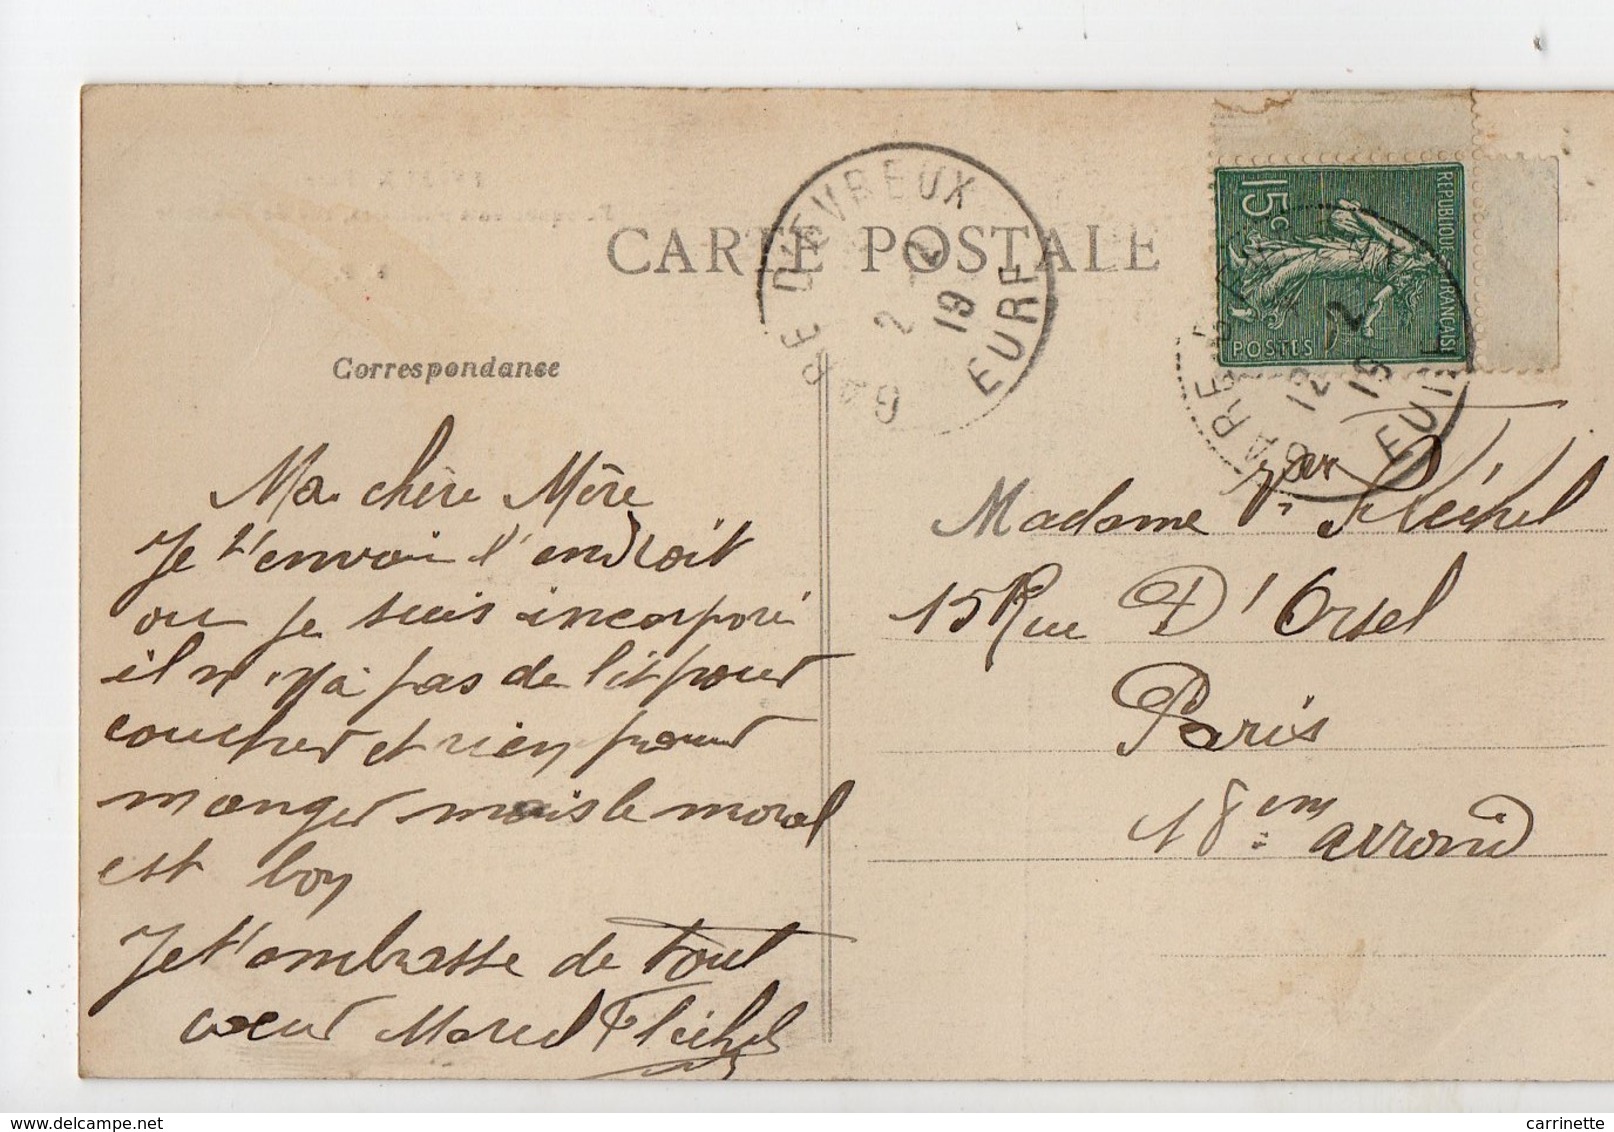 CARTE POSTALE
GARE D'EVREUX
EURE
19
REPUBLIQUE FRANÇAISE
15c
POSTES
GARE
19
Correspondance
Ma chère Mère
Je t'envoi l'endroit
ou je suis incorporé
il n'y a pas de lit pour
coucher et rien pour
manger mais le moral
est bon
Je t'ambrasse de tout
cœur Marcel Fléchel
Madame Fléchel
15 Rue D'Orsel
Paris
18em arrond
carrinette